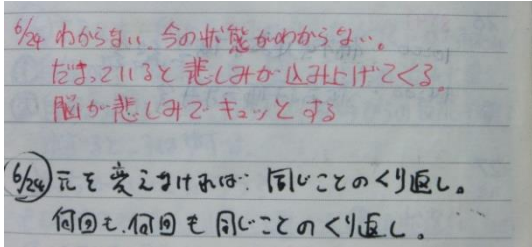 6/24 わからない、今の状態がわからない。
だまっていると悲しみが込み上げてくる。
脳が悲しみでキュッとする
6/24 元を変えなければ、同じことのくり返し。
何回も、何回も同じことのくり返し。